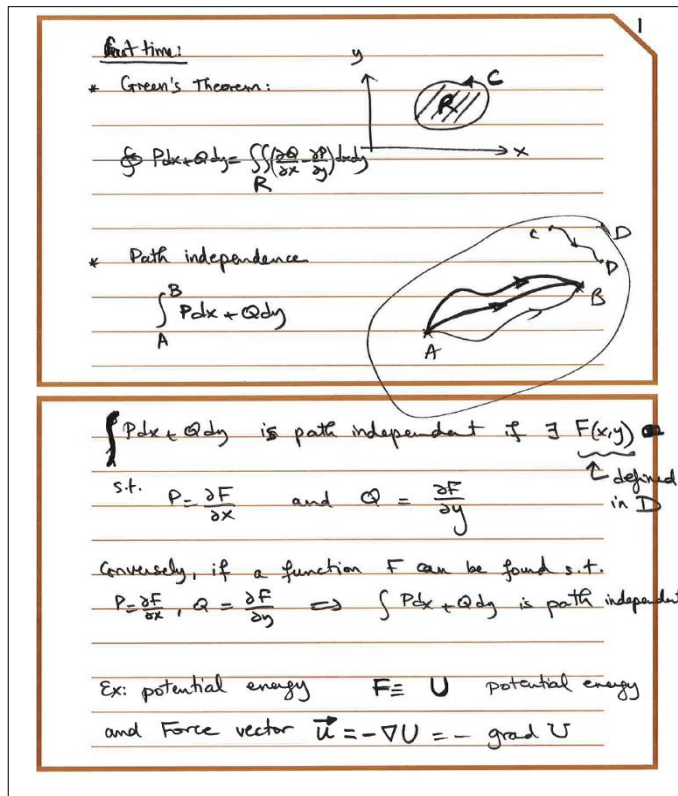 1
Last time:
* Green's Theorem:
y
C
R
x
∮ Pdx + Qdy = ∬ (∂Q/∂x - ∂P/∂y) dxdy
R
* Path independence
C
D
D
B
A
∫_A^B Pdx + Qdy
∫ Pdx + Qdy is path independent if ∃ F(x,y)
s.t. P = ∂F/∂x and Q = ∂F/∂y
↑ defined
in D
Conversely, if a function F can be found s.t.
P = ∂F/∂x, Q = ∂F/∂y ⇒ ∫ Pdx + Qdy is path independent
Ex: potential energy F ≡ U potential energy
and Force vector u⃗ = -∇U = - grad U